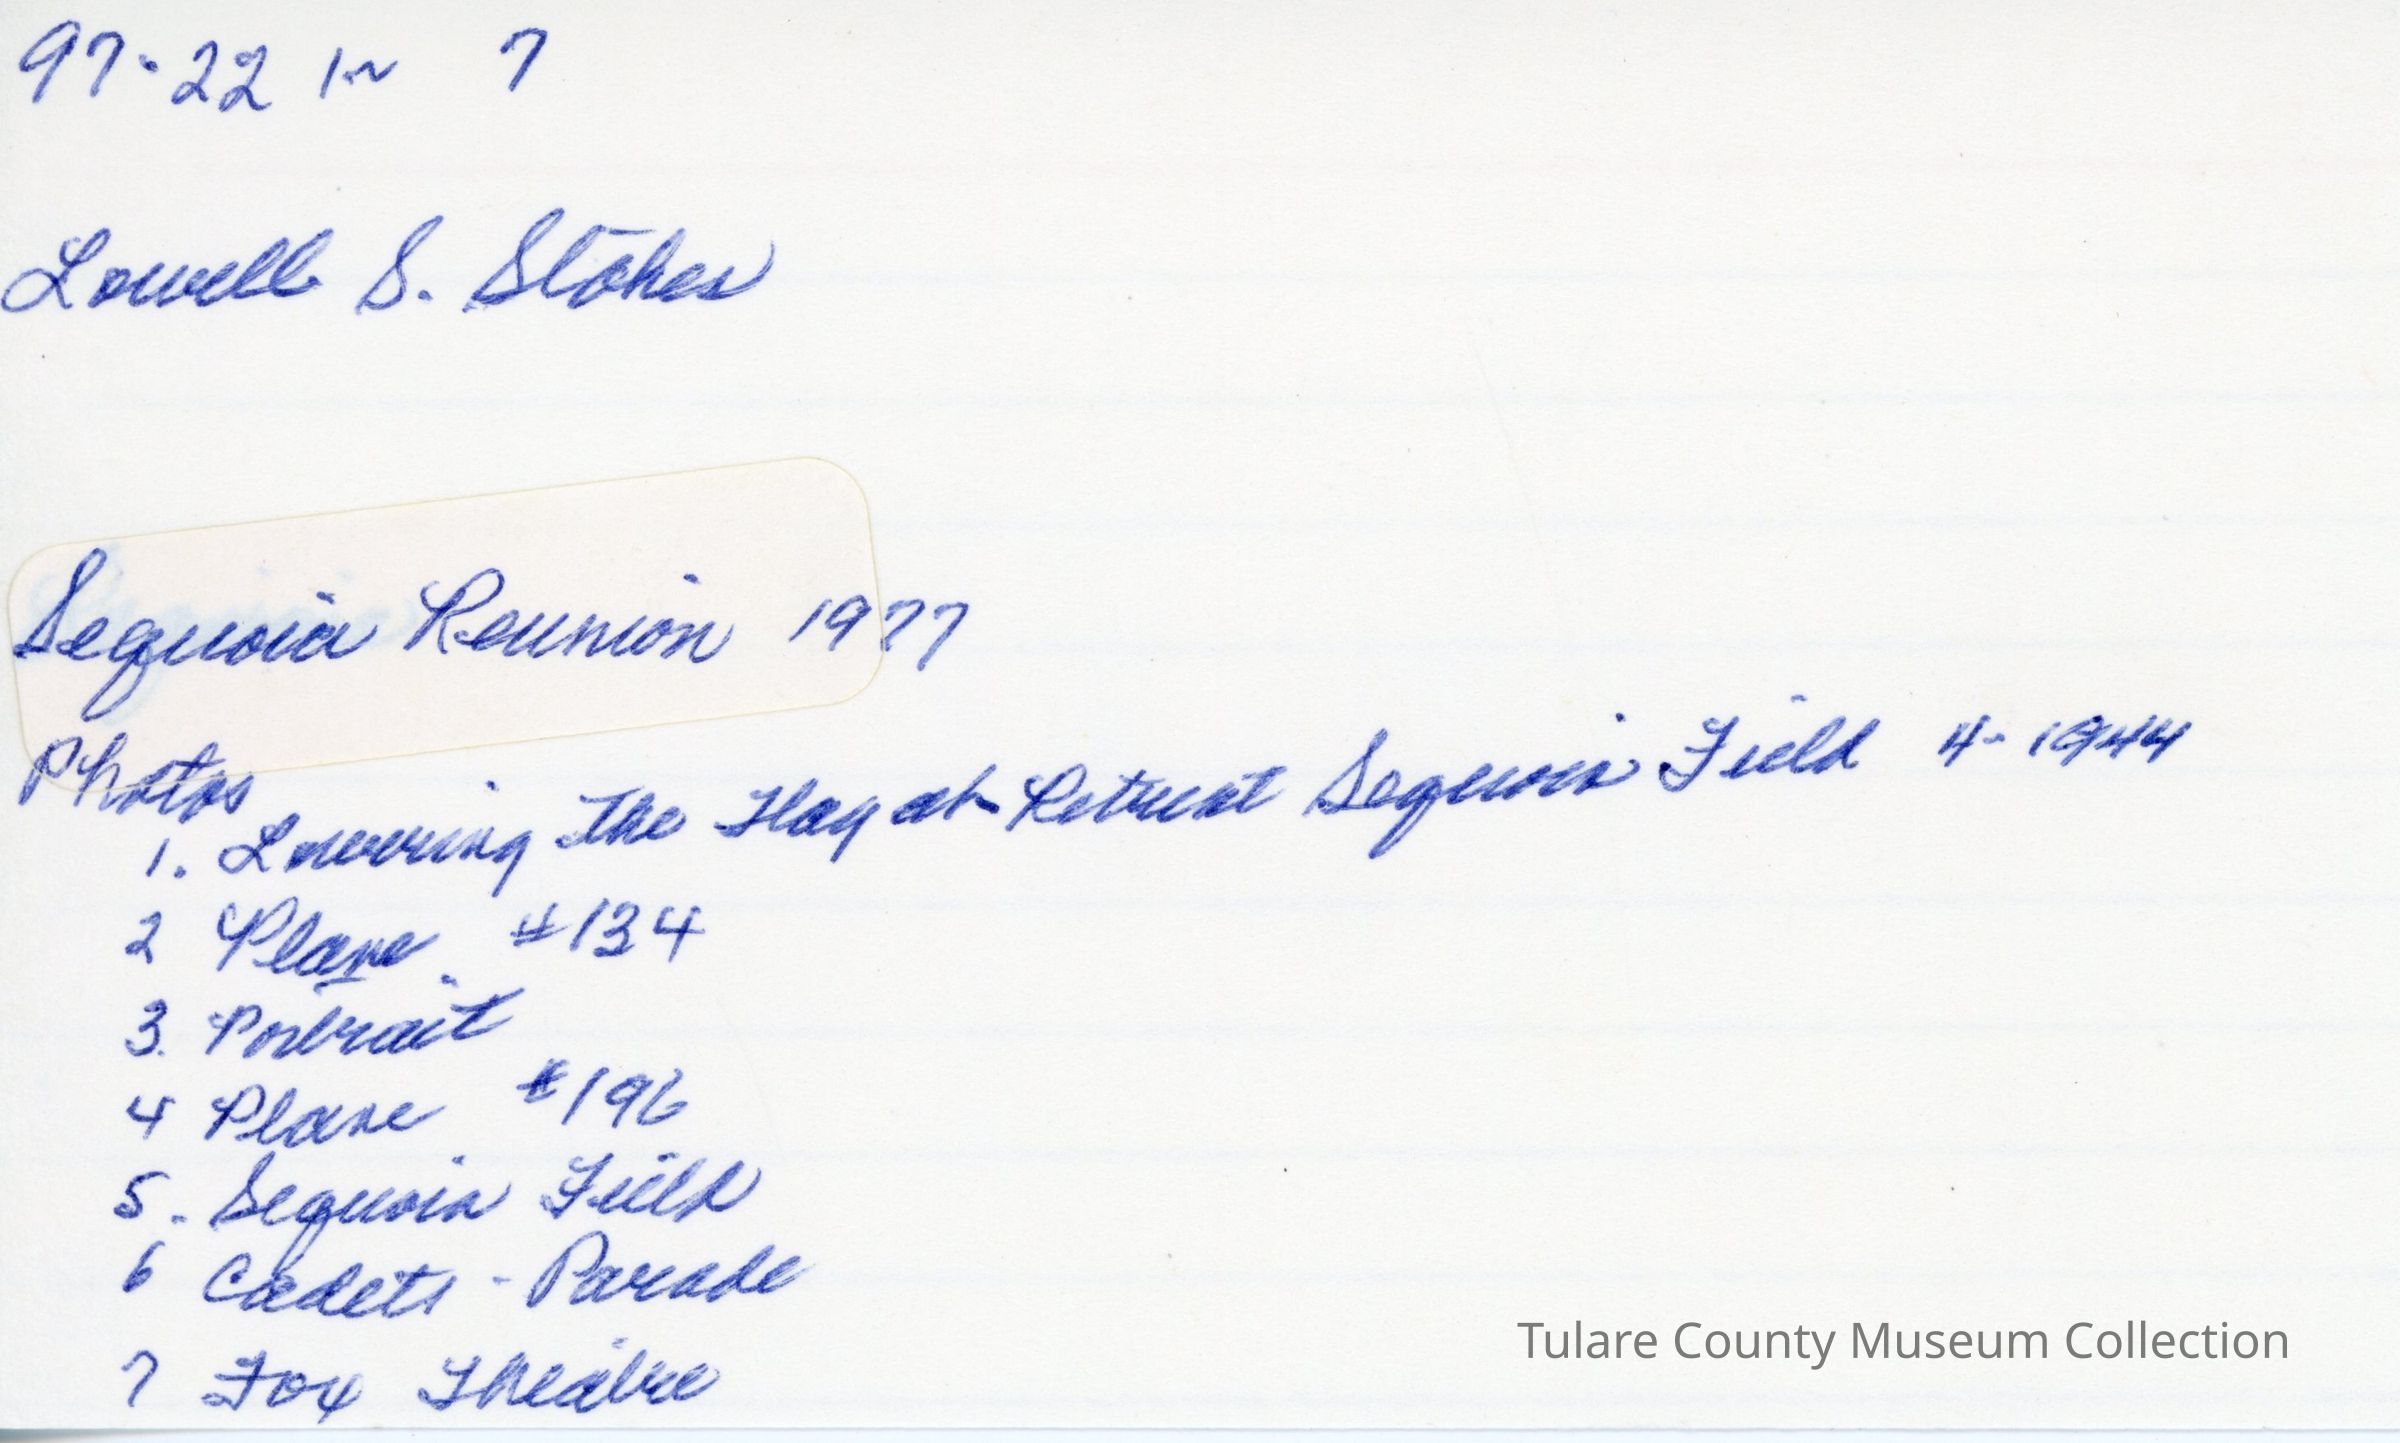 97-22 1~ 7
Lowell S. Stokes
Sequoia Reunion 1977
Photos
1. Lowering The Flag at Retreat Sequoia Field 4-1944
2 Plane #134
3. Portrait
4 Plane #196
5. Sequoia Field
6 Cadets - Parade
7 Fox Theatre
Tulare County Museum Collection